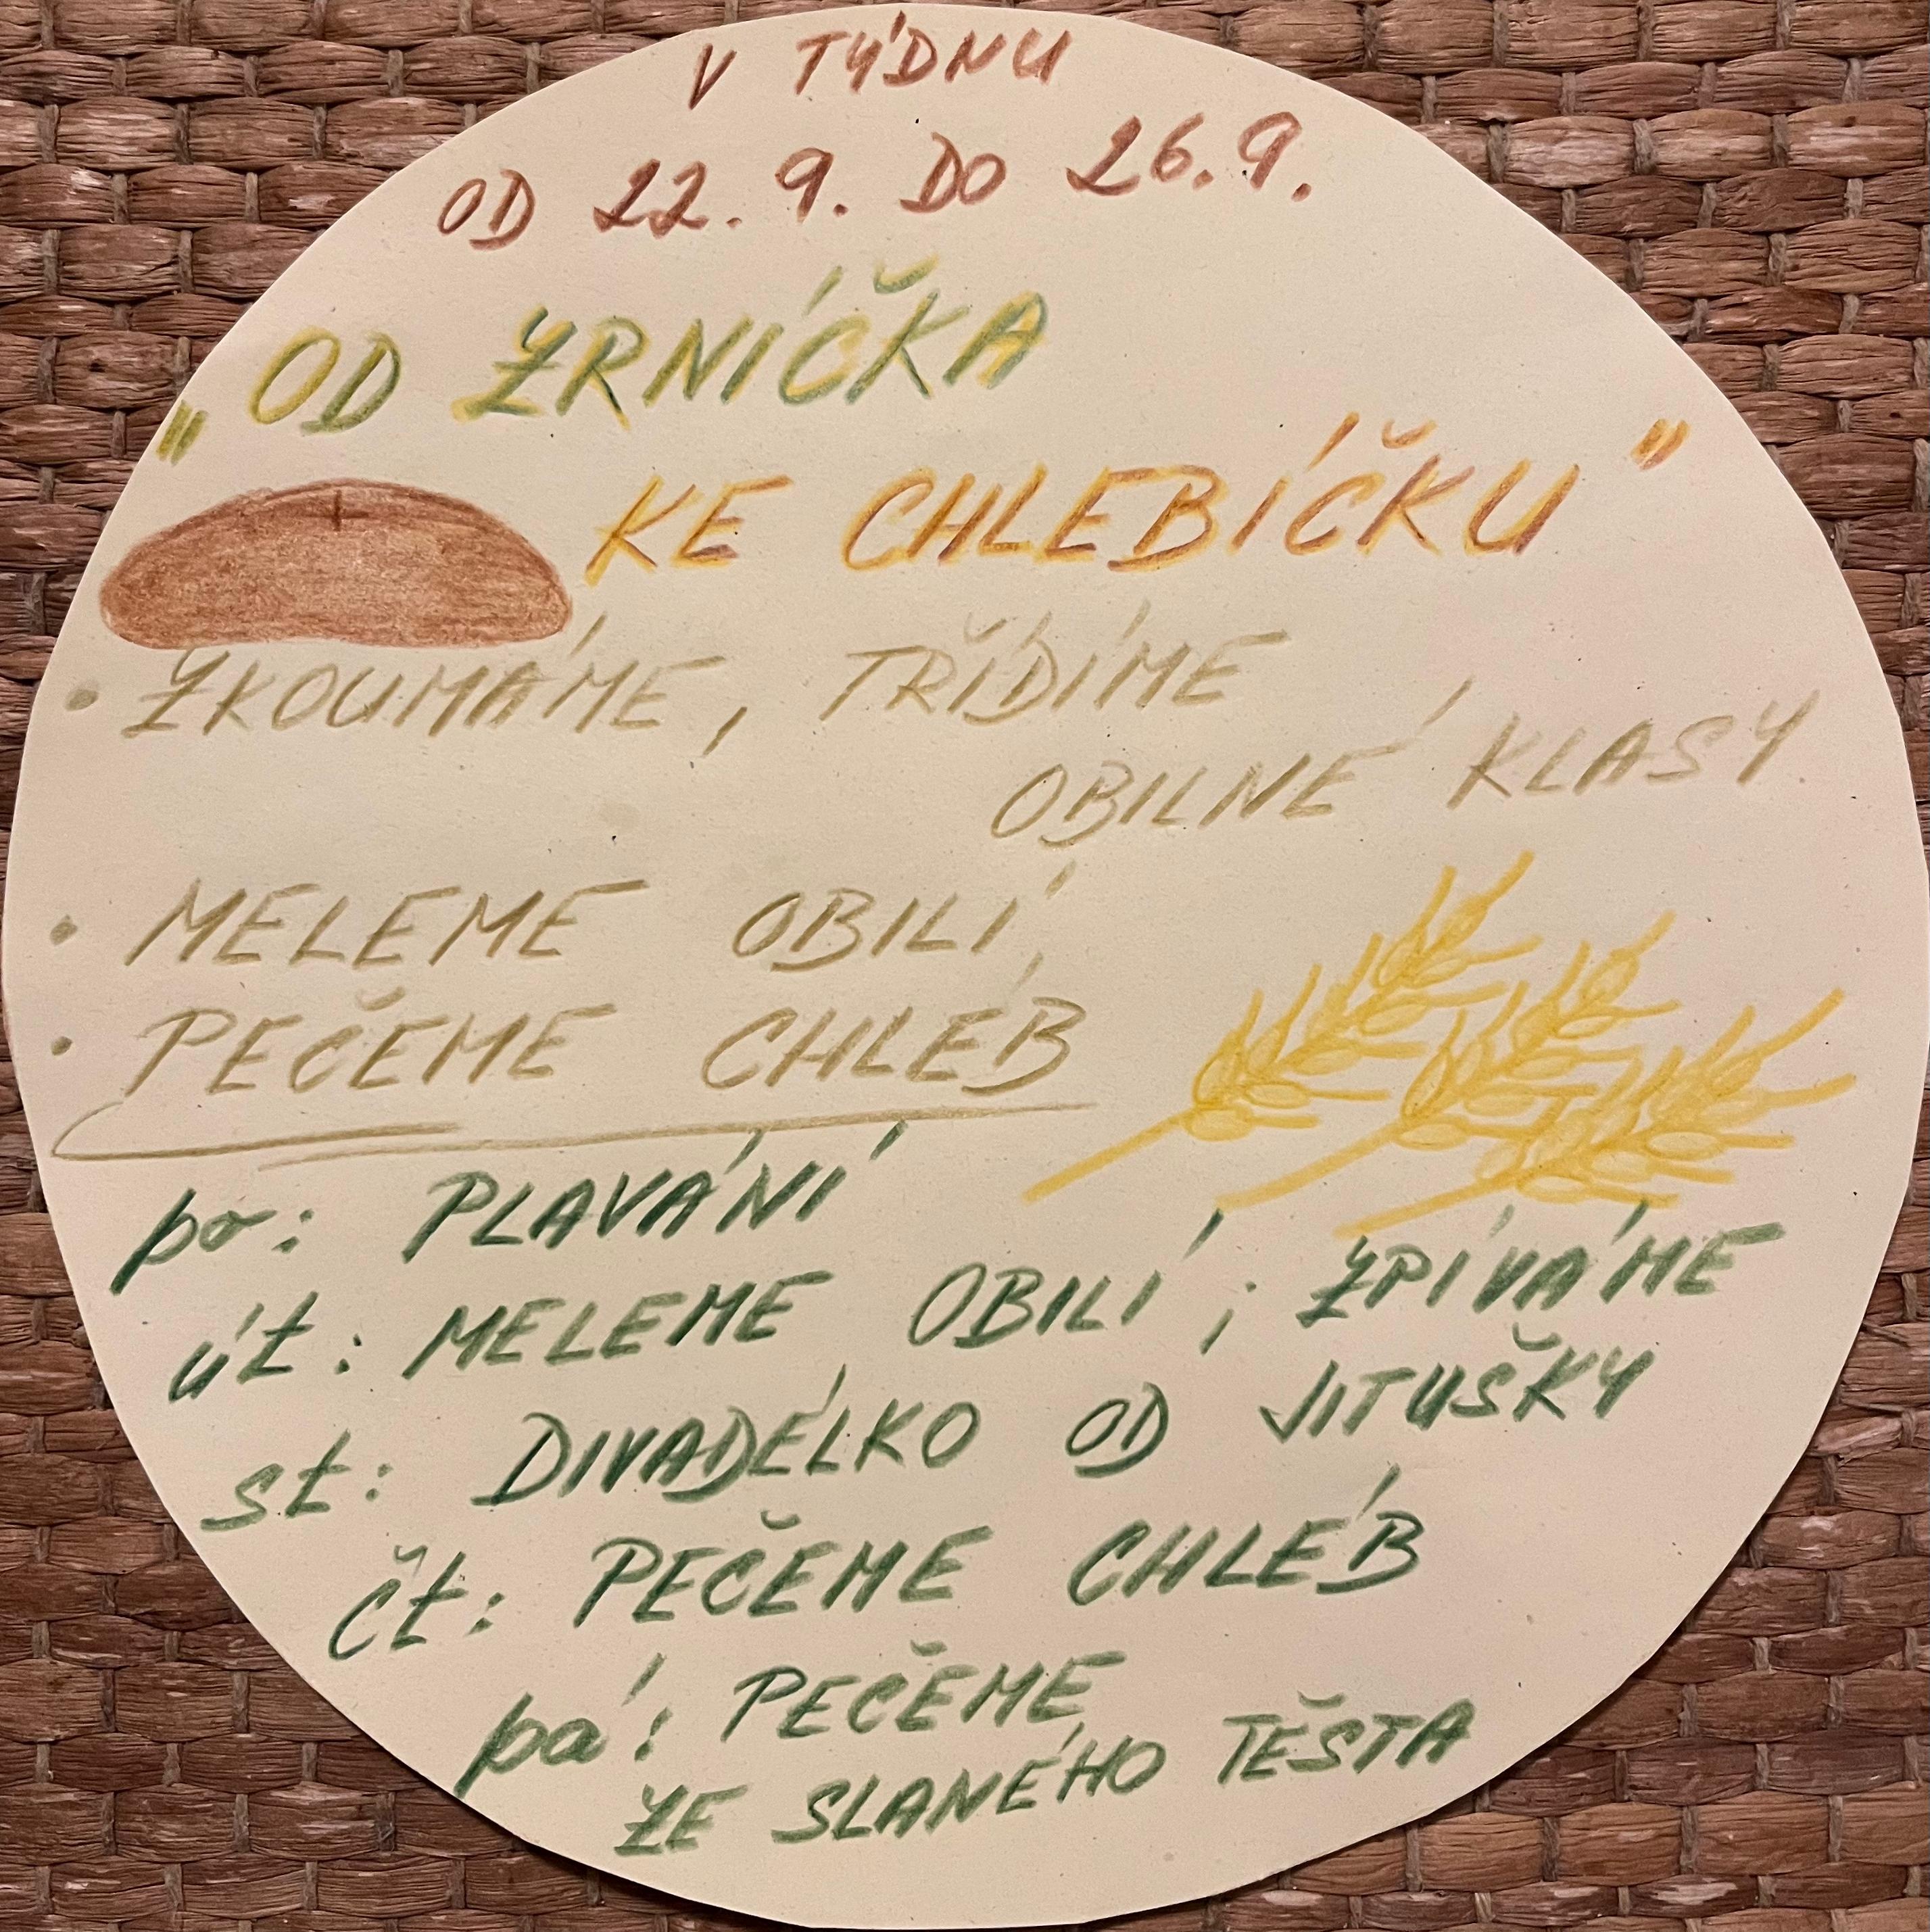 V TÝDNU
OD 22. 9. DO 26. 9.
„OD ZRNÍČKA
KE CHLEBÍČKU"
• ZKOUMÁME, TŘÍDÍME
OBILNÉ KLASY
• MELEME OBILÍ
• PEČEME CHLÉB
po: PLAVÁNÍ
út: MELEME OBILÍ; ZPÍVÁME
st: DIVADÉLKO OD JITUŠKY
čt: PEČEME CHLÉB
pá: PEČEME
ZE SLANÉHO TĚSTA